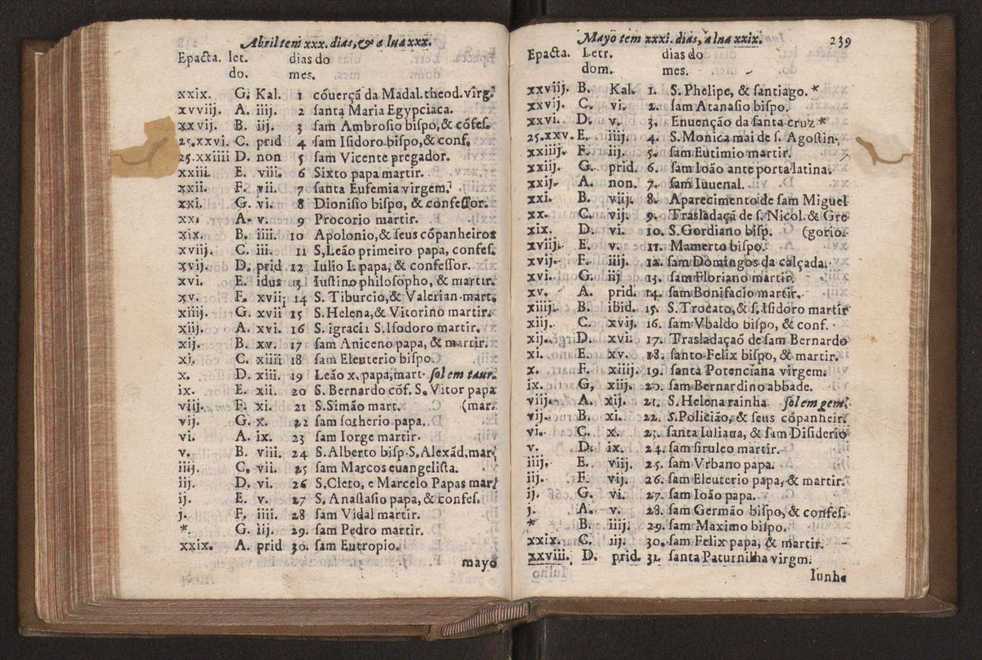 Abril tem xxx. dias, & a lua xxx.
Epacta. let. dias do
do. mes.
xxix. G. Kal. 1 cõuerçã da Madal. theod. virg.
xxviij. A. iiij. 2 santa Maria Egypciaca.
xxvij. B. iij. 3 sam Ambrosio bispo, & cõfes.
25.xxvi. C. prid 4 sam Isidoro bispo, & conf.
25.xxiiii D. non 5 sam Vicente pregador.
xxiii. E. viii. 6 Sixto papa martir.
xxii. F. vii. 7 santa Eufemia virgem.
xxi. G. vi. 8 Dionisio bispo, & confessor.
xx. A. v. 9 Procorio martir.
xix. B. iiii. 10 Apolonio, & seus cõpanheiros
xviij. C. iii. 11 S, Leão primeiro papa, confes.
xvij. D. prid 12 Iulio I. papa, & confessor.
xvi. E. idus 13 Iustino philosopho, & martir.
xv. F. xvii; 14 S. Tiburcio, & Valerian mart.
xiiij. G. xvii 15 S. Helena, & Vitorino martir.
xiij. A. xvi. 16 S. igraci1 S. Isodoro martir.
xij. B. xv. 17 sam Aniceno papa, & martir.
xi. C. xiiii 18 sam Eleuterio bispo.
x. D. xiii. 19 Leão x. papa, mart. sol em taur.
ix. E. xii. 20 S. Bernardo cõf. S. Vitor papa
viij. F. xi. 21 S. Simão mart. (mar.
vij. G. x. 22 sam sotherio papa.
vi. A. ix. 23 sam Iorge martir.
v. B. viii. 24 S. Alberto bisp. S. Alexãd. mar.
iiij. C. vii. 25 sam Marcos euangelista.
iij. D. vi. 26 S. Cleto, e Marcelo Papas mar.
ij. E. v. 27 S. Anastasio papa, & confes.
j. F. iiii. 28 sam Vidal martir.
*. G. iij. 29. sam Pedro martir.
xxix. A. prid 30. sam Eutropio.
mayo
Mayo tem xxxi. dias, a lua xxix. 239
Epacta. Letr. dias do
dom. mes.
xxviij. B. Kal. 1. S. Phelipe, & santiago. *
xxvij. C. vi. 2. sam Atanasio bispo.
xxvi. D. v. 3. Enuenção da santa cruz *
25.xxv. E. iiij. 4. S. Monica mai de s. Agostin.
xxiiij. F. iij. 5. sam Eutimio martir.
xxiij. G. prid. 6. sam Ioão ante porta latina.
xxij. A. non. 7. sam Iuuenal.
xxi. B. viij. 8. Aparecimento de sam Miguel
xx. C. vij. 9. Trasladaçã de s. Nicol. & Gre
xix. D. vi. 10. S. Gordiano bisp. (gorio.
xviij. E. v. 11. Mamerto bispo.
xvij. F. iiij. 12. sam Domingos da calçada.
xvi. G. iij 13. sam Floriano martir.
xv. A. prid. 14. sam Bonifacio martir.
xiiij. B. ibid. 15. S. Trocato, & s. Isidoro martir
xiij. C. xvij. 16. sam Vbaldo bispo, & conf.
xij. D. xvii 17. Trasladaçaõ de sam Bernardo
xi. E. xv. 18. santo Felix bispo, & martir.
x. F. xiiij. 19. santa Potenciana virgem.
ix. G. xiij. 20. sam Bernardino abbade.
viij. A. xij. 21. S. Helena rainha sol em gem.
vij. B. xi. 22. S. Policião, & seus cõpanheir.
vi. C. x. 23. santa Iuliana, & sam Disiderio
v. D. ix. 24. sam siruleo martir.
iiij. E. viij. 25. sam Vrbano papa.
iij. F. vij. 26. sam Eleuterio papa, & martir.
ij. G. vi. 27. sam Ioão papa.
j. A. v. 28. sam Germão bispo, & confes.
* B. iiij. 29. sam Maximo bispo.
xxix. C. iij. 30. sam Felix papa, & martir.
xxviii. D. prid. 31. santa Paturnilha virgm.
Iunho